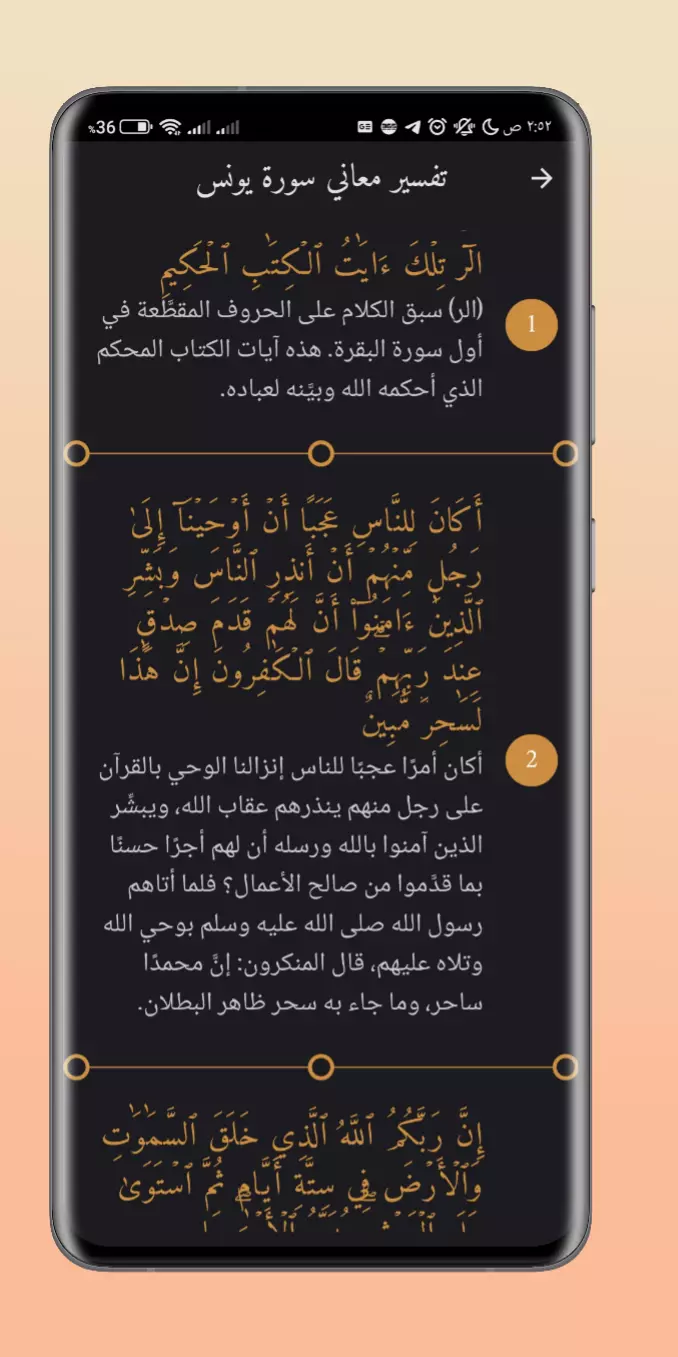 ٢:٥٢ ص
%36
تفسير معاني سورة يونس
الٓر تِلۡكَ ءَايَٰتُ ٱلۡكِتَٰبِ ٱلۡحَكِيمِ
1
(الر) سبق الكلام على الحروف المقطَّعة في
أول سورة البقرة. هذه آيات الكتاب المحكم
الذي أحكمه الله وبيَّنه لعباده.
أَكَانَ لِلنَّاسِ عَجَبًا أَنۡ أَوۡحَيۡنَآ إِلَىٰ
رَجُلٖ مِّنۡهُمۡ أَنۡ أَنذِرِ ٱلنَّاسَ وَبَشِّرِ
ٱلَّذِينَ ءَامَنُوٓاْ أَنَّ لَهُمۡ قَدَمَ صِدۡقٍ
عِندَ رَبِّهِمۡۗ قَالَ ٱلۡكَٰفِرُونَ إِنَّ هَٰذَا
لَسَٰحِرٞ مُّبِينٌ
2
أكان أمرًا عجبًا للناس إنزالنا الوحي بالقرآن
على رجل منهم ينذرهم عقاب الله، ويبشِّر
الذين آمنوا بالله ورسله أن لهم أجرًا حسنًا
بما قدَّموا من صالح الأعمال؟ فلما أتاهم
رسول الله صلى الله عليه وسلم بوحي الله
وتلاه عليهم، قال المنكرون: إنَّ محمدًا
ساحر، وما جاء به سحر ظاهر البطلان.
إِنَّ رَبَّكُمُ ٱللَّهُ ٱلَّذِي خَلَقَ ٱلسَّمَٰوَٰتِ
وَٱلۡأَرۡضَ فِي سِتَّةِ أَيَّامٖ ثُمَّ ٱسۡتَوَىٰ